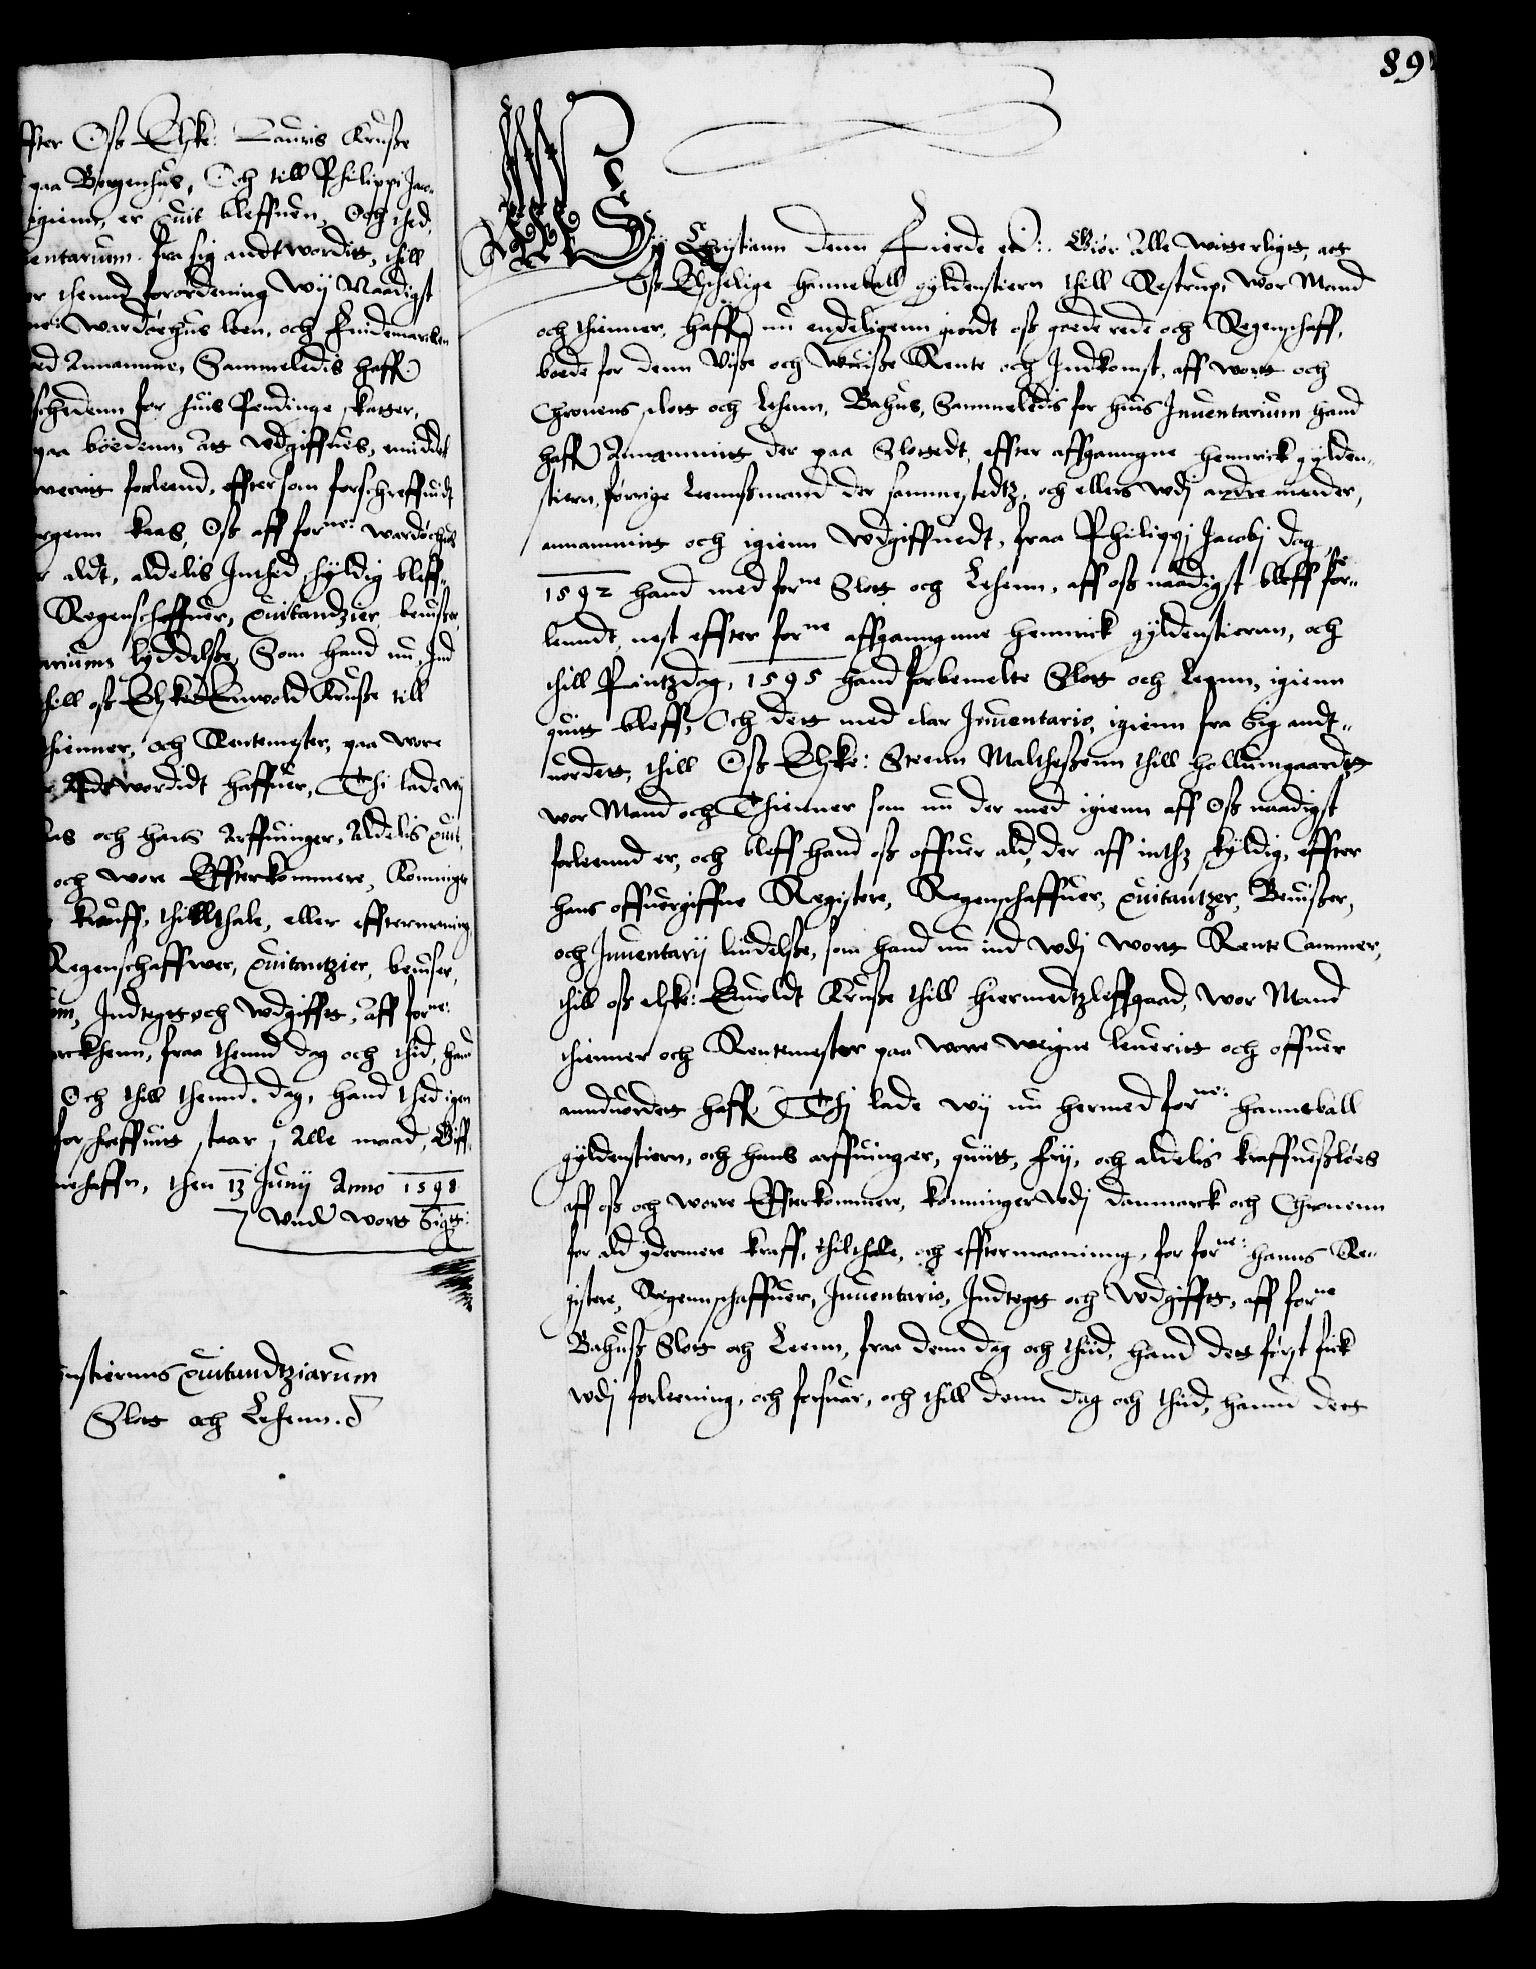 ffter Oß Elske: Lauris Kruße
paa Bergenhus, Och till Philippi Jaco¬
igienn, er quit bleffuen, Och thed,
entarium fra sig andtwordit, thill
er thennd forordening Wij Naadigst
ne: Wardøehus leen, och Findemarken
ed Annamme, Sammeledis haffr
schedenn for huis Pendinge, skatter,
paa bøedenn, Att wdgiffues, emiddel
werit forleend, effter som forschreffuit
ørgenn kaas, Oß aff forne: Wardøehus
r aldt, aldelis Inthed skyldig bleff,
Regenschaffuer, Quitandzier, beuißer,
arium lyddelße, Som hand nu, Ind
thill oß Elske: Enwold Kruße till
thienner, och Rentemester, paa wore
Andtwordidt haffuer, Thi lade wij
as och hans Arffuinger, Aldelis quit,
och wore Effterkommere, Koninge
kraff, thillthale, eller efftermaning
Regenschaffwer, Quitantzier, beuiser,
m, Indtegt och Wdgifft, Aff forne:
rckhenn, fraa thennd dag och thid, hand
Och thill thennd dag, hand thed igen
forschreffuit staar i Alle maad, Giff.
nehaffn, then 13 Junij Anno 1598
Vnder wort Sigt:
nstierns Quitandtziarum
Slot och Lehenn.
89
Wij Christiann denn Fierde etc: Giør Alle witterligt, att
Oß Elschelige Hanneball gyldenstiern thill Restrup, Wor Mand
och thienner, haffr nu endeligenn giordt oß goede rede och Regenschaff,
boede for denn Viße och Wuiße Rente och Indkomst, aff wort och
Chronens slott och Lehenn, Bahus, Sammeledis for huis Inuentarium hand
haffr Annammit der paa Slottedt, effter affganngne Hennrick gylden¬
stiern, førrige Leenßmand der sammestedtz, och ellers wdj andre maader,
annammit och igienn Wdgiffuedt, fraa Philippj Jacobj dag
1592 hand med forne Slott och Lehenn, aff oß naadigst bleff for¬
lenndt, nest effter forne affganngnne Hennrick gyldenstiernn, och
thill Pintzdag, 1595 hand forbemelte Slott och Leenn, igienn
quit bleff, Och dett med clar Inuentario, igienn fra sig andt¬
uordett, thill Oß Elske: Steenn Maltheßenn thill hollumgaardt
wor Mand och Thienner som nu der med igienn aff Oß naadigst
forleennd er, och bleff hand oß offuer ald, der aff inthz skyldig, effter
hans offuergiffne Registere, Regenschaffuer, Quitantzer, Beuißer,
och Inuentarij liudelße, som hand nu ind wdj wort Rente Cammer,
thill oß elske: Enuoldt Kruße thill Hiermedtzleffgaad, Wor Mand
thienner och Rentemester paa Worre weigne leuerit och offuer
anndtuordett haffr Thj lade wij nu hermed forne: Hanneball
gyldenstiern, och hans arffuinger, quitt, frij, och aldelis kraffueßløes
aff oß och worre Effterkommere, konninger wdj Danmarck och Chronenn
for ald ydermere kraff, thilthale, och efftermaaninng, for forne: hanns Re¬
gistere, Regennschaffuer, Inuentario, Indtegt och Wdgifft, aff forne
Bahuß Slott och Leenn, fraa denn dag och thiid, hand dett først fick
wdj forleening, och forsuar, och thill denn dag och thiid, hannd dett